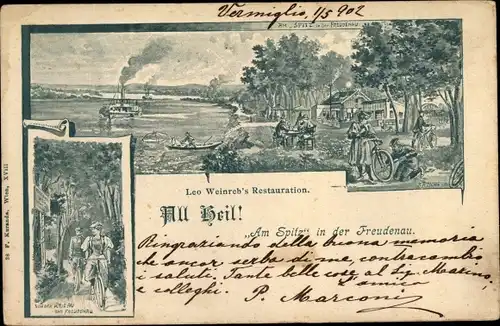 Vermiglio, 1/5 902
AM „SPITZ“ IN DER FREUDENAU
Leo Weinreb's Restauration.
All Heil!
„Am Spitz“ in der Freudenau.
Ringraziando della buona memoria
che ancor serba di me, contracambio
i saluti. Tante belle cose al Sg. Massimo,
e colleghi.
amico
P. Marconi
IN DER FREUDENAU
F. Kuranda, Wien, XVIII